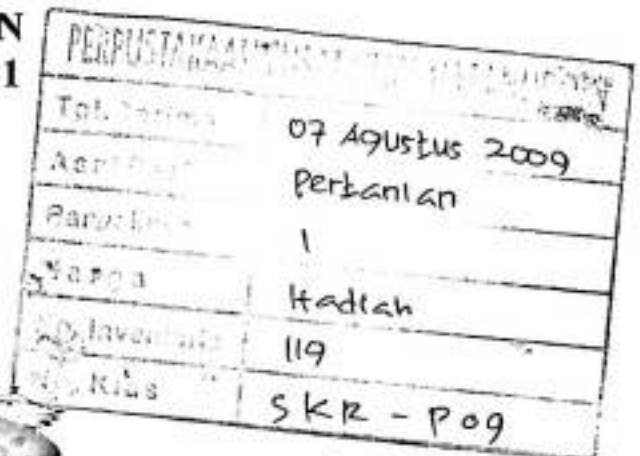 N
1
PERPUSTAKAAN
Tgl. Terima 07 Agustus 2009
Asal Pertanian
1
Harga Hadiah
No. Inventaris 119
No. Klas SKR - P09